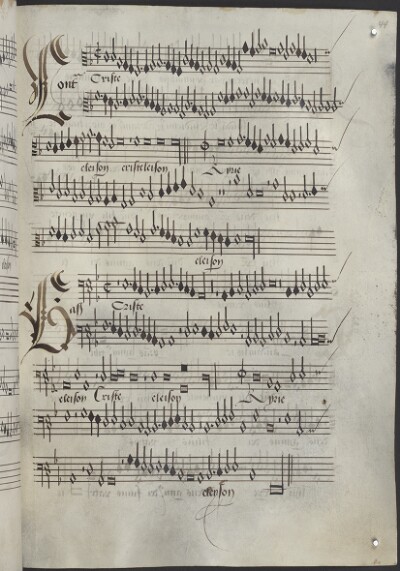 Cont Criste
eleison cristeleison Kyrie
eleison
Bass Criste
eleison Criste eleison Kyrie
eleyson